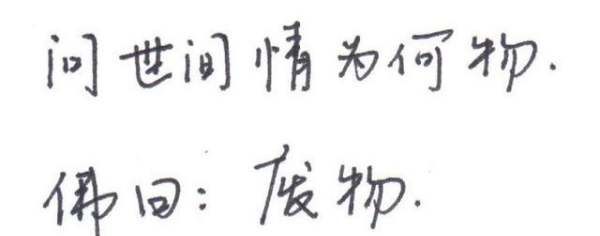 问世间情为何物.
佛曰：废物.